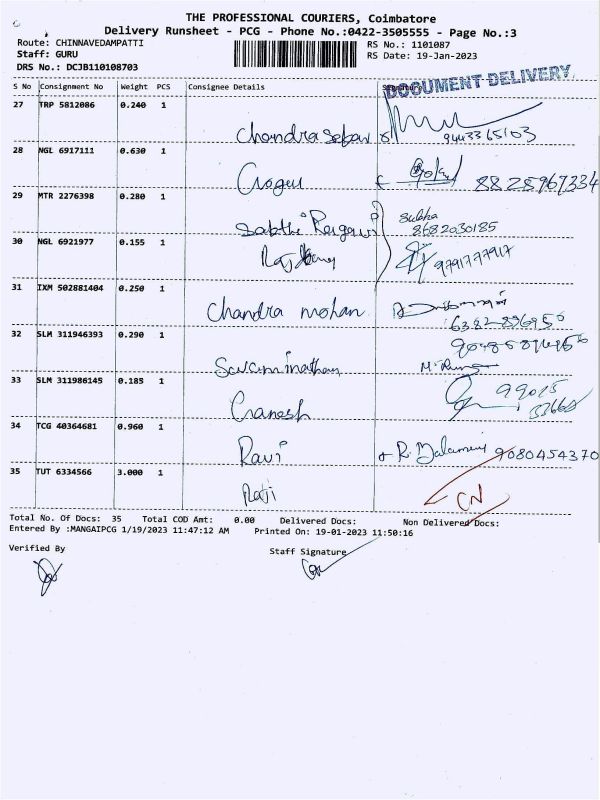 THE PROFESSIONAL COURIERS, Coimbatore
Delivery Runsheet - PCG - Phone No.:0422-3505555 - Page No.:3
Route: CHINNAVEDAMPATTI RS No.: 1101087
Staff: GURU RS Date: 19-Jan-2023
DRS No.: DCJB110108703
DOCUMENT DELIVERY
S No Consignment No Weight PCS Consignee Details
27 TRP 5812086 0.240 1
Chandra 9443365103
28 NGL 6917111 0.630 1
Gokul 8825967334
29 MTR 2276398 0.280 1
Sakthi Subha
8682030185
30 NGL 6921977 0.155 1
9791777917
31 IXM 502881404 0.250 1
Chandra mohan
32 SLM 311946393 0.290 1
Swaminathan
33 SLM 311986145 0.185 1
Ganesh 99015
34 TCG 40364681 0.960 1
Ravi R. 9080454370
35 TUT 6334566 3.000 1
Raji CN
Total No. Of Docs: 35 Total COD Amt: 0.00 Delivered Docs: Non Delivered Docs:
Entered By :MANGAIPCG 1/19/2023 11:47:12 AM Printed On: 19-01-2023 11:50:16
Verified By Staff Signature